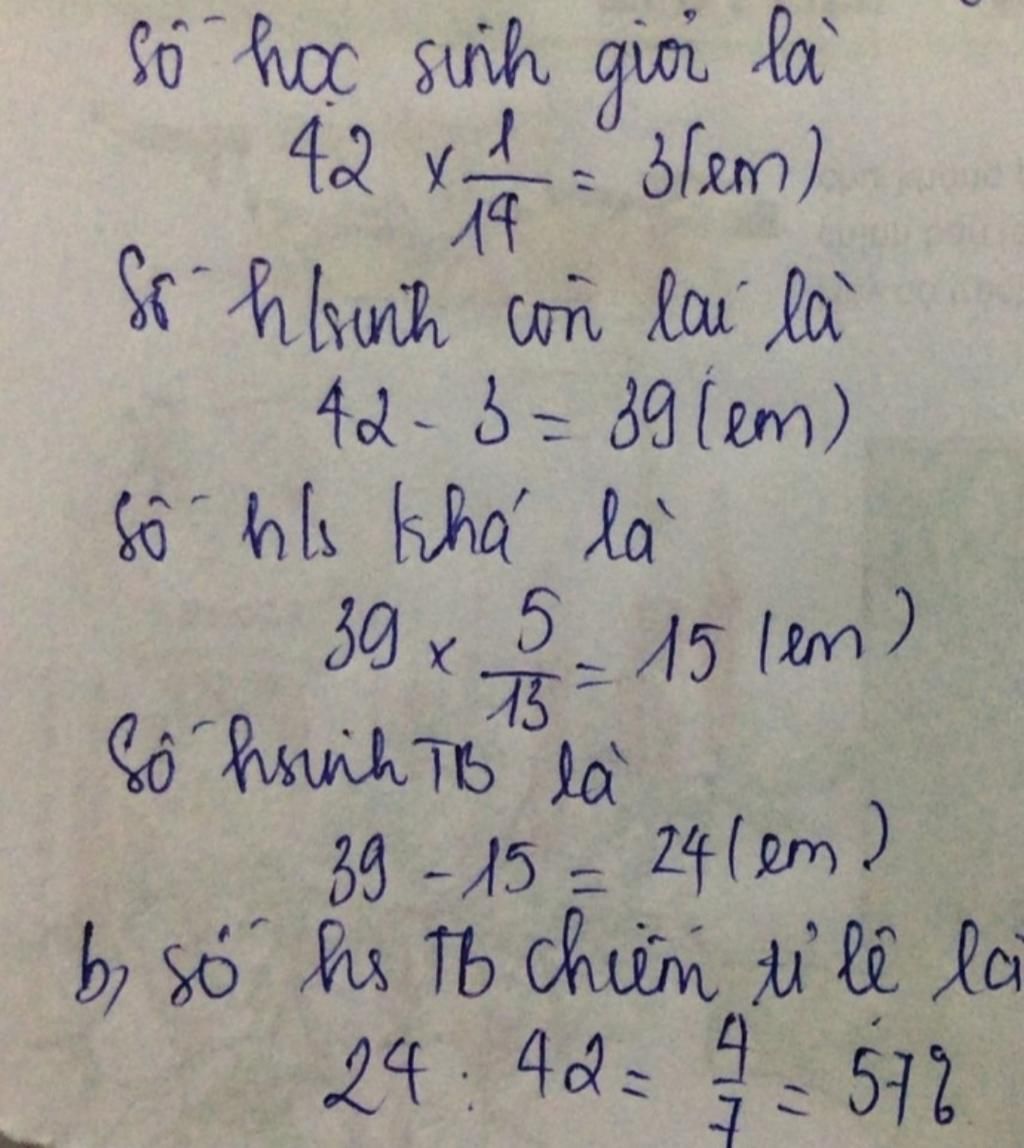 Số học sinh giỏi là
42 × 1/14 = 3 (em)
Số h/sinh còn lại là
42 - 3 = 39 (em)
Số h/s khá là
39 × 5/13 = 15 (em)
Số hsinh TB là
39 - 15 = 24 (em)
b, số hs TB chiếm tỉ lệ là
24 : 42 = 4/7 = 57%